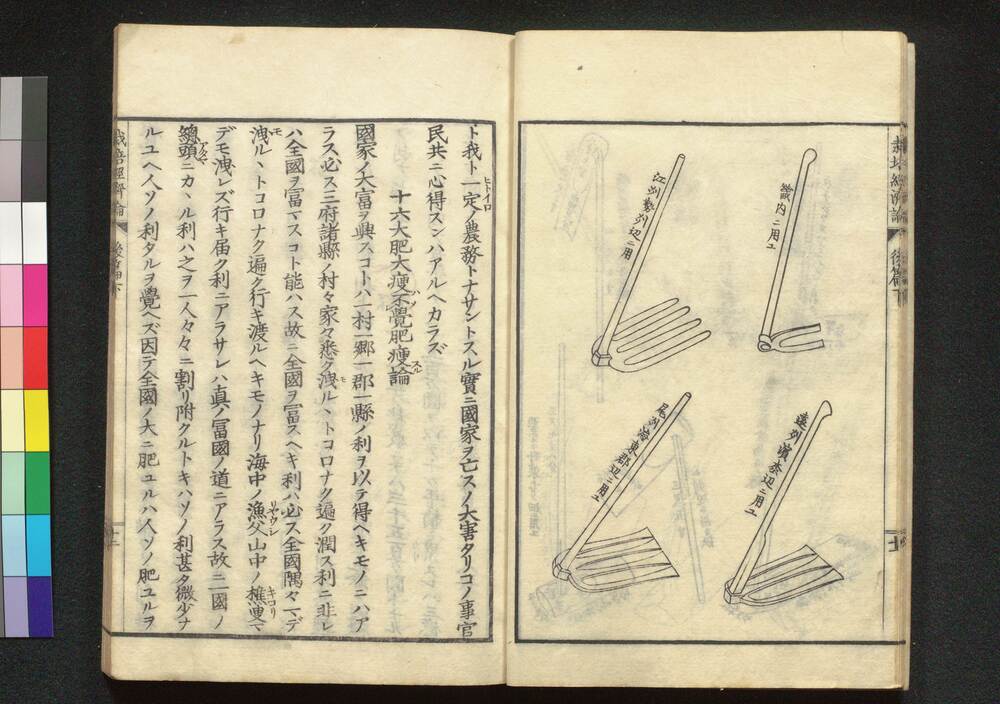 畿内ニ用ユ
江州勢州辺ニ用
遠州濱奈辺ニ用ユ
尾州海東郡辺ニ用ユ
ト我ト一定ノ農務トナサントスル實ニ國家ヲ亡スノ大害タリコノ事官
民共ニ心得スンハアルヘカラズ
十六大肥大瘦不覺肥瘦論
國家ノ大富ヲ興スコトハ一村一郷一郡一縣ノ利ヲ以テ得ヘキモノニハア
ラス必ス三府諸縣ノ村々家々悉ク洩ルヽトコロナク遍ク潤ス利ニ非レ
ハ全國ヲ富マスコト能ハス故ニ全國ヲ富スヘキ利ハ必ス全國隅々マデ
洩ルヽトコロナク遍ク行キ渡ルヘキモノナリ海中ノ漁父山中ノ樵叟マ
デモ洩レズ行キ届ク利ニアラサレハ真ノ冨國ノ道ニアラス故ニ一國ノ
頭ニカヽル利ハ之ヲ一人々々ニ割リ附クルトキハソノ利甚タ微少ナ
ルユヘ人ソノ利タルヲ覺ヘズ因テ全國ノ大ニ肥ユルハ人ソノ肥ユルヲ
栽培經濟論
後篇下
十二